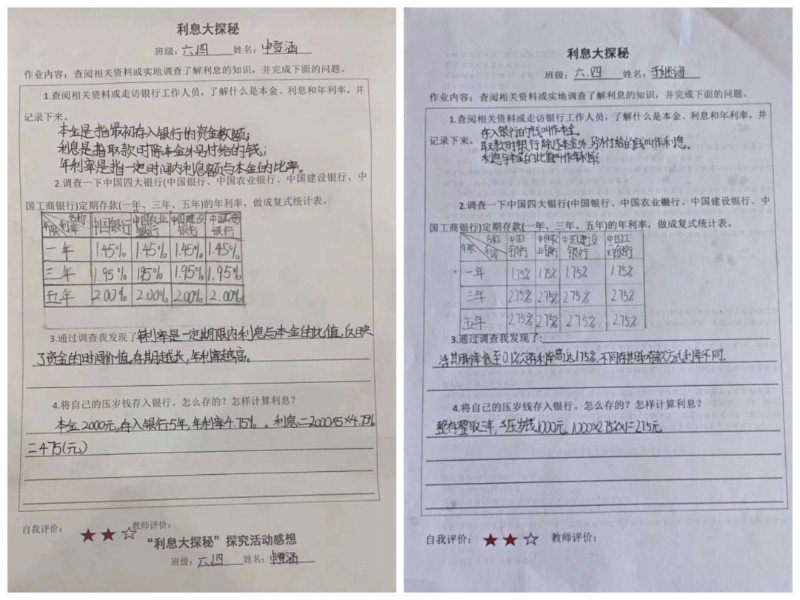 利息大探秘
班级：六.四 姓名：申雪涵
作业内容：查阅相关资料或实地调查了解利息的知识，并完成下面的问题。
1.查阅相关资料或走访银行工作人员，了解什么是本金、利息和年利率，并
记录下来。
本金是指最初存入银行的资金数额;
利息是指取款时除本金外另付给的钱;
年利率是指一定时间内利息额与本金的比率。
2.调查一下中国四大银行(中国银行、中国农业银行、中国建设银行、中
国工商银行)定期存款(一年、三年、五年)的年利率，做成复式统计表。
年限 利率 名称 中国银行 中国农业银行 中国建设银行 中国工商银行
一年 1.45% 1.45% 1.45% 1.45%
三年 1.95% 1.95% 1.95% 1.95%
五年 2.00% 2.00% 2.00% 2.00%
3.通过调查我发现了年利率是一定期限内利息与本金的比值,反映
了资金的时间价值,存期越长,年利率越高。
4.将自己的压岁钱存入银行，怎么存的？怎样计算利息？
本金2000元,存入银行5年,年利率4.75%。利息=2000×5×4.75%
=475(元)
自我评价： 教师评价：
“利息大探秘”探究活动感想
班级：六.四 姓名：申雪涵
利息大探秘
班级：六.四 姓名：
作业内容：查阅相关资料或实地调查了解利息的知识，并完成下面的问题。
1.查阅相关资料或走访银行工作人员，了解什么是本金、利息和年利率，并
记录下来。
存入银行的钱叫作本金。
取款时银行除本金外,另付给的钱叫作利息。
利息与本金的比值叫作利率;
2.调查一下中国四大银行(中国银行、中国农业银行、中国建设银行、中
国工商银行)定期存款(一年、三年、五年)的年利率，做成复式统计表。
年限 名称 中国银行 中国农业银行 中国建设银行 中国工商银行
一年 1.75% 1.75% 1.75% 1.75%
三年 2.75% 2.75% 2.75% 2.75%
五年 2.75% 2.75% 2.75% 2.75%
3.通过调查我发现了：
活期利率低至0.1%,定期利率高达1.75%,不同存期、存款方式利率不同。
4.将自己的压岁钱存入银行，怎么存的？怎样计算利息？
整存整取 年, 压岁钱1000元, 1000×2.75%×1=27.5元
自我评价： 教师评价：